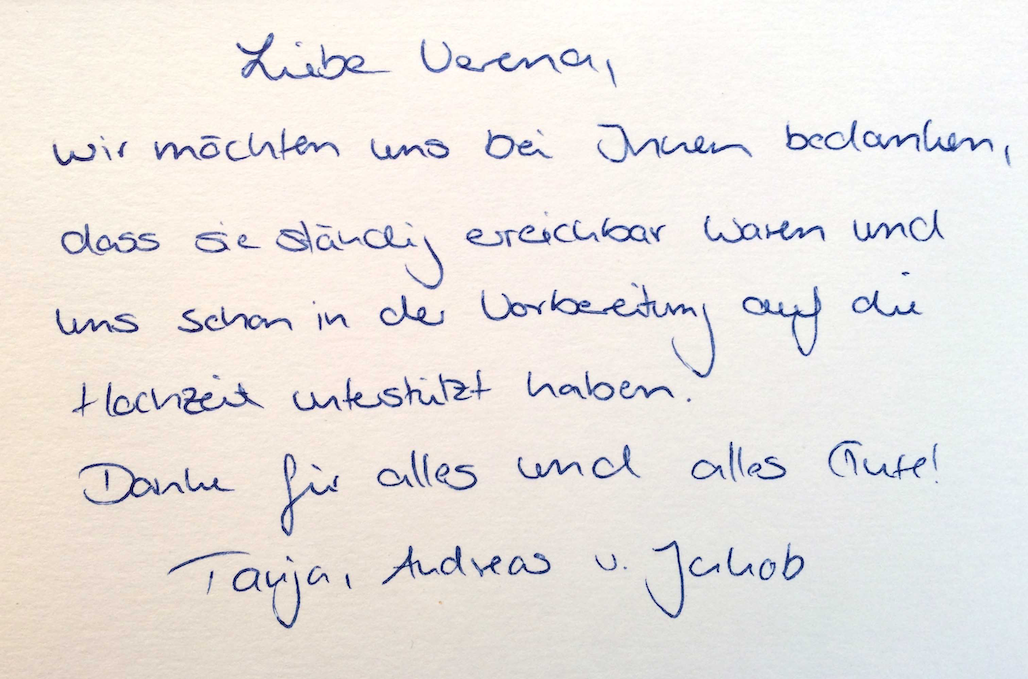 Liebe Verena,
wir möchten uns bei Ihnen bedanken,
dass sie ständig erreichbar waren und
uns schon in der Vorbereitung auf die
Hochzeit unterstützt haben.
Danke für alles und alles Gute!
Tanja, Andreas u. Jakob